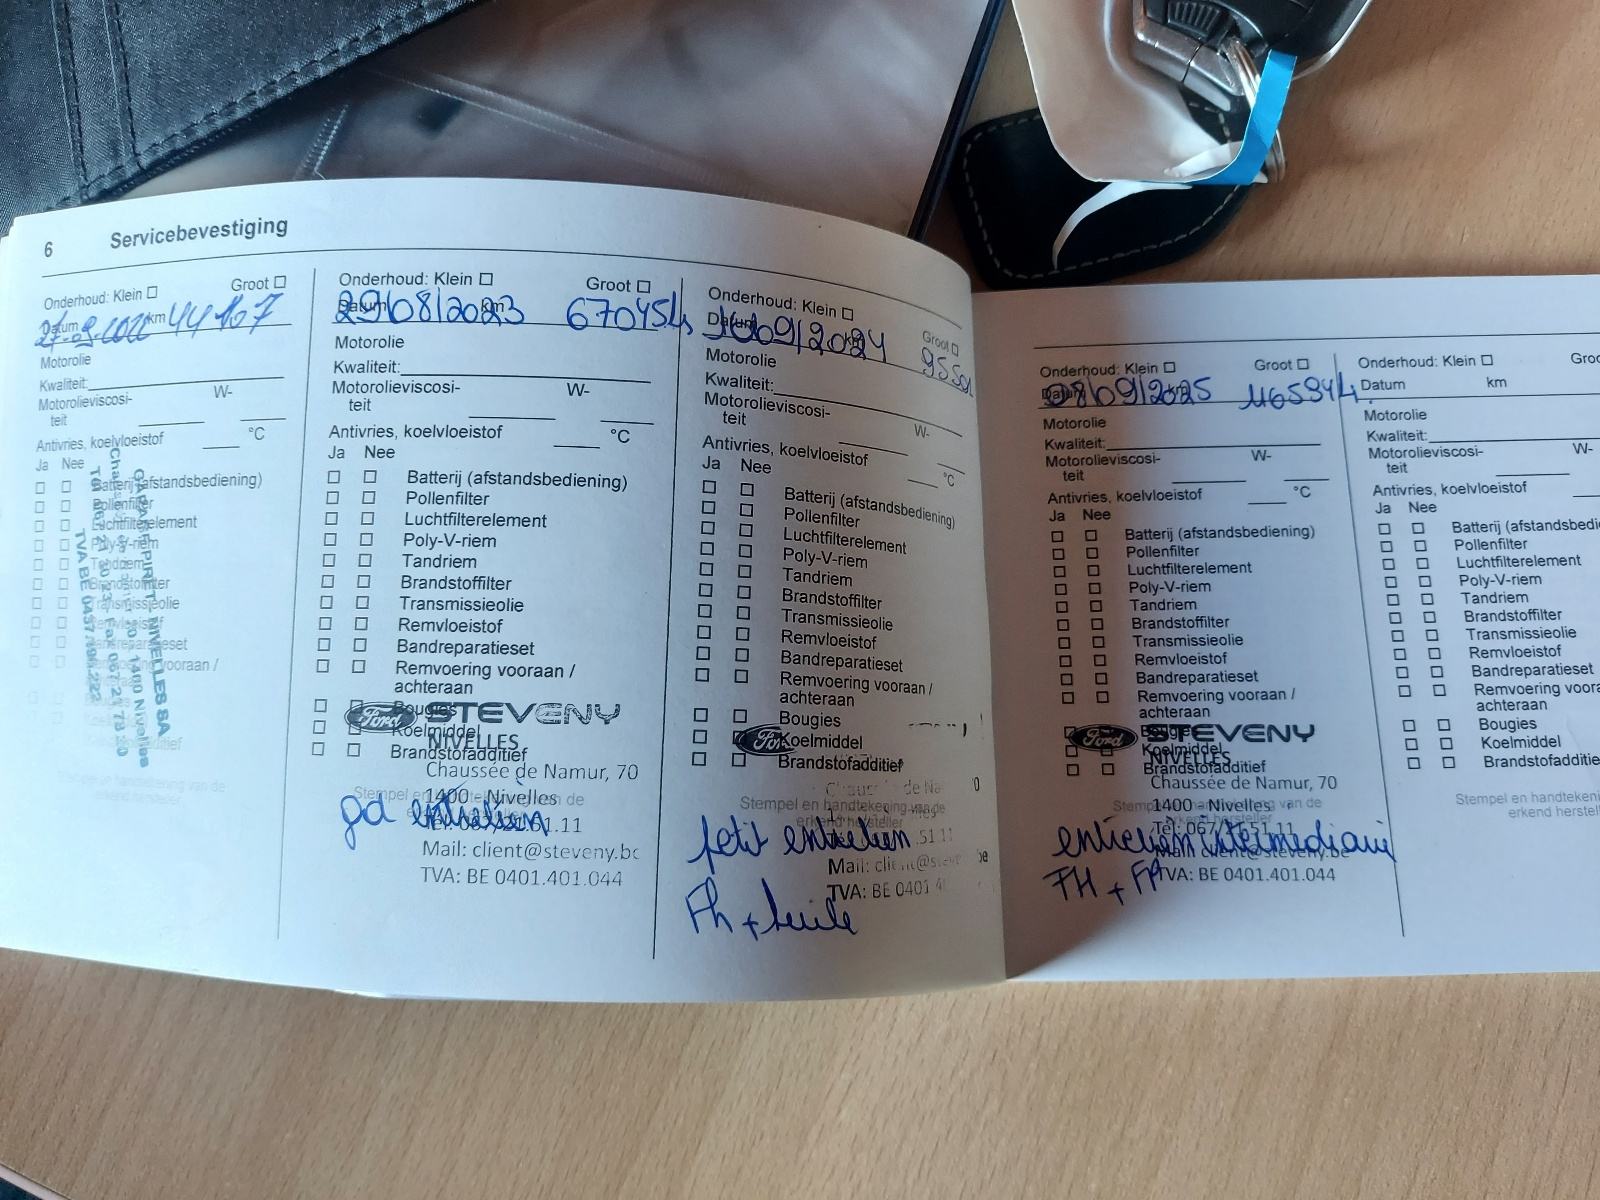 6 Servicebevestiging
Onderhoud: Klein Groot
Datum km 44 167
Motorolie
Kwaliteit:
Motorolieviscosi-
teit W-
Antivries, koelvloeistof °C
Ja Nee
Batterij (afstandsbediening)
Pollenfilter
Luchtfilterelement
Poly-V-riem
Tandriem
Brandstoffilter
Transmissieolie
Remvloeistof
Bandreparatieset
NIVELLES SA
1400 Nivelles
Onderhoud: Klein Groot
Datum km
29/08/2023
Motorolie
Kwaliteit:
Motorolieviscosi-
teit W-
Antivries, koelvloeistof °C
Ja Nee
Batterij (afstandsbediening)
Pollenfilter
Luchtfilterelement
Poly-V-riem
Tandriem
Brandstoffilter
Transmissieolie
Remvloeistof
Bandreparatieset
Remvoering vooraan /
achteraan
Bougies
Koelmiddel
Brandstofadditief
Stempel en handtekening van de
erkend hersteller
Ford STEVENY
NIVELLES
Chaussée de Namur, 70
1400 Nivelles
Mail: client@steveny.be
TVA: BE 0401.401.044
gd entretien
Onderhoud: Klein Groot
Datum km
Motorolie
Kwaliteit:
Motorolieviscosi-
teit W-
Antivries, koelvloeistof °C
Ja Nee
Batterij (afstandsbediening)
Pollenfilter
Luchtfilterelement
Poly-V-riem
Tandriem
Brandstoffilter
Transmissieolie
Remvloeistof
Bandreparatieset
Remvoering vooraan /
achteraan
Bougies
Koelmiddel
Brandstofadditief
Stempel en handtekening van de
erkend hersteller
petit entretien
Fh + huile
Onderhoud: Klein Groot
Datum km
08/09/2025
Motorolie
Kwaliteit:
Motorolieviscosi-
teit W-
Antivries, koelvloeistof °C
Ja Nee
Batterij (afstandsbediening)
Pollenfilter
Luchtfilterelement
Poly-V-riem
Tandriem
Brandstoffilter
Transmissieolie
Remvloeistof
Bandreparatieset
Remvoering vooraan /
achteraan
Bougies
Koelmiddel
Brandstofadditief
Ford STEVENY
NIVELLES
Chaussée de Namur, 70
1400 Nivelles
Tél: 067/ 51.11
Mail: client@steveny.be
TVA: BE 0401.401.044
entretien intermediaire
FH +
Onderhoud: Klein Groo
Datum km
Motorolie
Kwaliteit:
Motorolieviscosi-
teit W-
Antivries, koelvloeistof
Ja Nee
Batterij (afstandsbedi
Pollenfilter
Luchtfilterelement
Poly-V-riem
Tandriem
Brandstoffilter
Transmissieolie
Remvloeistof
Bandreparatieset
Remvoering voora
achteraan
Bougies
Koelmiddel
Brandstofadditie
Stempel en handtekeni
erkend herstell